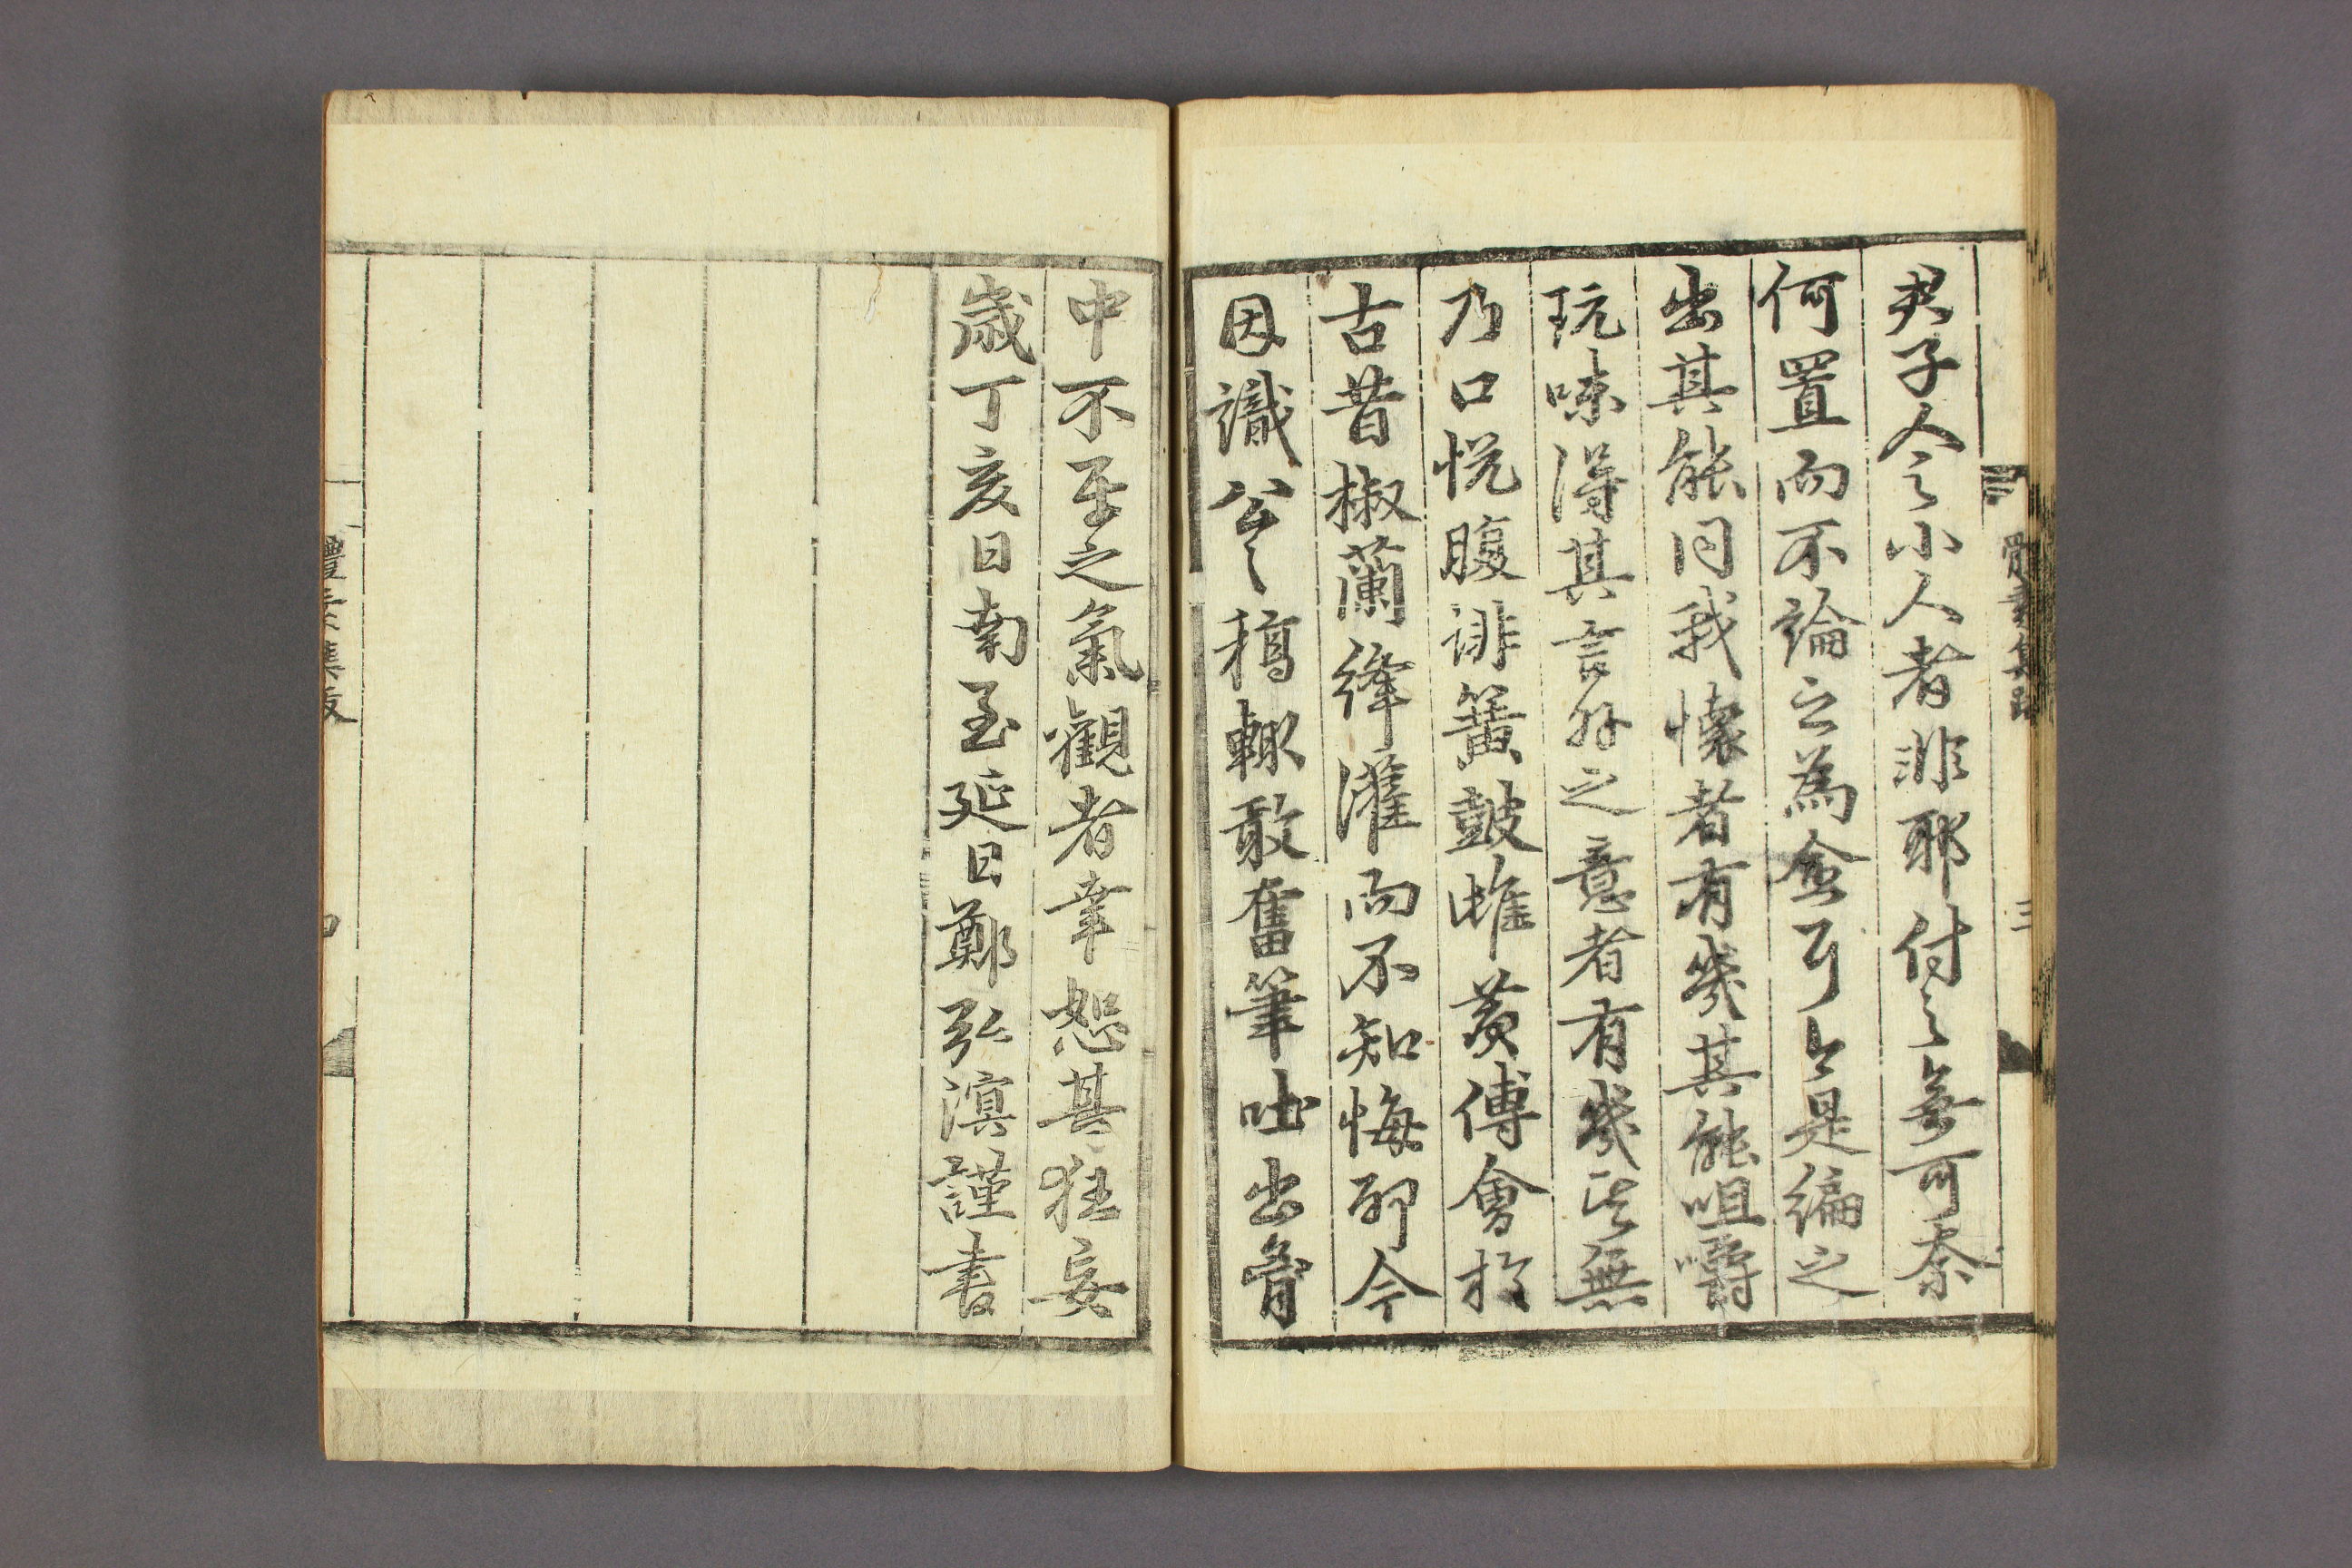 君子今之小人者非耶付之無可奈
何置而不論之為愈耳今是編之
出其能同我懷者有幾其能咀嚼
玩味得其言外之意者有幾此無
乃口悅腹誹簧鼓雌黃傅會於
古昔椒蘭絳灌而不知悔耶今
因識公之稿輒敢奮筆吐出胷
中不平之氣觀者幸恕其狂妄
歲丁亥日南至延日鄭弘溟謹書
體素集跋
三